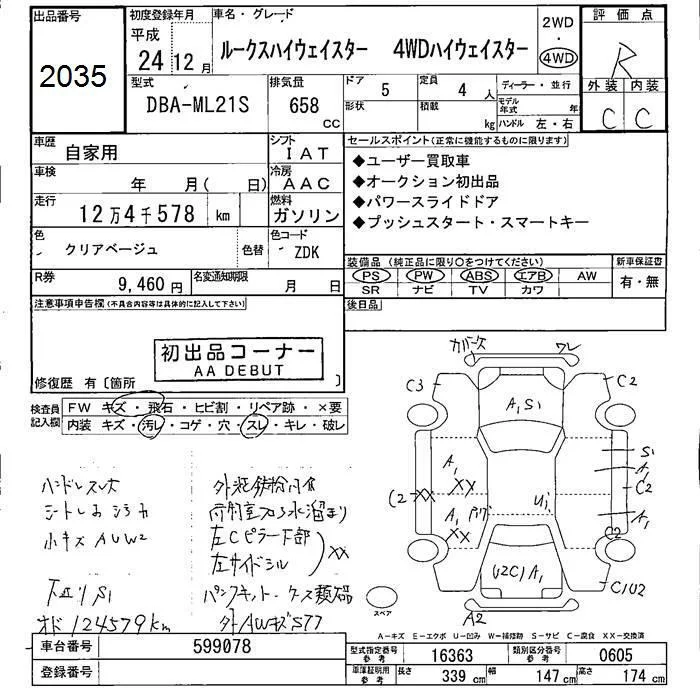 出品番号
2035
初度登録年月
平成
24 12 月
車名・グレード
ルークスハイウェイスター 4WDハイウェイスター
2WD
・
4WD
評価点
R
外装 内装
C C
型式
DBA-ML21S
排気量
658
CC
ドア 5
定員 4 人
形状
積載 kg
ディーラー・並行
モデル年式 年
ハンドル 左・右
車歴
自家用
シフト
IAT
車検
年 月( 日)
冷房
AAC
走行
12万4千578 km
燃料
ガソリン
色
クリアベージュ
色替
色コード
ZDK
R券
9,460 円
名変通知期限
月 日
セールスポイント(正常に機能するものに限ります)
◆ユーザー買取車
◆オークション初出品
◆パワースライドドア
◆プッシュスタート・スマートキー
装備品(純正品に限り○をつけてください)
PS PW ABS エアB AW
SR ナビ TV カワ
新車保証書
有・無
後日品
注意事項申告欄(不具合内容等は具体的に記入して下さい)
初出品コーナー
AA DEBUT
修復歴 有〔箇所 〕
検査員記入欄
FW キズ・飛石・ヒビ割・リペア跡・×要
内装 キズ・汚レ・コゲ・穴・スレ・キレ・破レ
ハンドルスレ大
小キズ AUW2
下回りS1
オド124579km
外装鉄粉
左Cピラー下部
左サイドシル
XX
パンクキット・ケース類
外AWキズS77
カバーケース
ワレ
C3
C2
A1 S1
A1
XX
C2
XX
A1
XX
U1
S1
A1
C2
A1
C2
U2C1A1
C1U2
A2
スペア
A-キズ E-エクボ U-凹み W-補修跡 S-サビ C-腐食 XX-交換済
車台番号
599078
登録番号
型式指定番号 参考
16363
類別区分番号 参考
0605
車庫証明用 参考
長さ 339 cm
幅 147 cm
高さ 174 cm